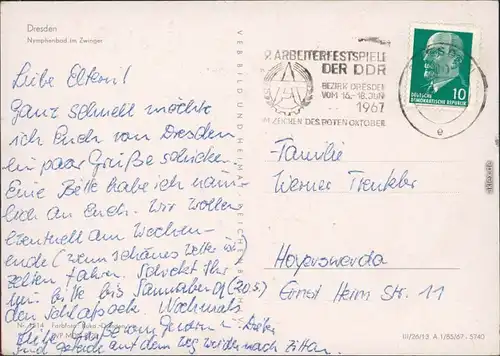 Dresden
Nymphenbad im Zwinger
Liebe Eltern!
Ganz schnell möchte
ich Euch von Dresden
ein paar Grüße schicken.
Eine Bitte habe ich näm-
lich an Euch. Wir wollen
eventuell am Wochen-
ende (wenn schönes Wetter ist)
zelten fahren. Schickt Ihr
uns bitte bis Sonnabend (20.5.)
den Schlafsack. Nochmals
liebe Grüße von
und auf dem Weg wieder nach Zittau.
VEB BILD UND HEIMAT REICHENBACH
9. ARBEITERFESTSPIELE
DER DDR
BEZIRK DRESDEN
VOM 16.-18. JUNI
1967
IM ZEICHEN DES ROTEN OKTOBER
10
DEUTSCHE
DEMOKRATISCHE REPUBLIK
e
Familie
Werner Trenkler
Hoyerswerda
Ernst Heim Str. 11
III/26/13 A 1/85/67 5740